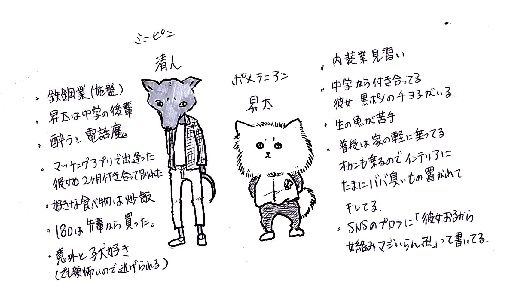 ミニピン
清人
・鉄鋼業(施盤)
・昇太は中学の後輩
・酔うと電話魔
・マッチングアプリで出会った
彼女と2ヶ月付き合って別れた
・好きな食べ物は炒飯
・180は先輩から買った。
・意外と子供好き
(怖いので逃げられる)
ポメラニアン
昇太
・内装業見習い
・中学から付き合ってる
彼女 黒ポメのチヨ がいる
・生の魚が苦手
・普段は家の軽に乗ってる
オカンも乗るのでインテリアに
たまにババ臭いもの置かれて
キレてる
・SNSのプロフに「彼女おるから
女絡みマジいらん卍」って書いてる